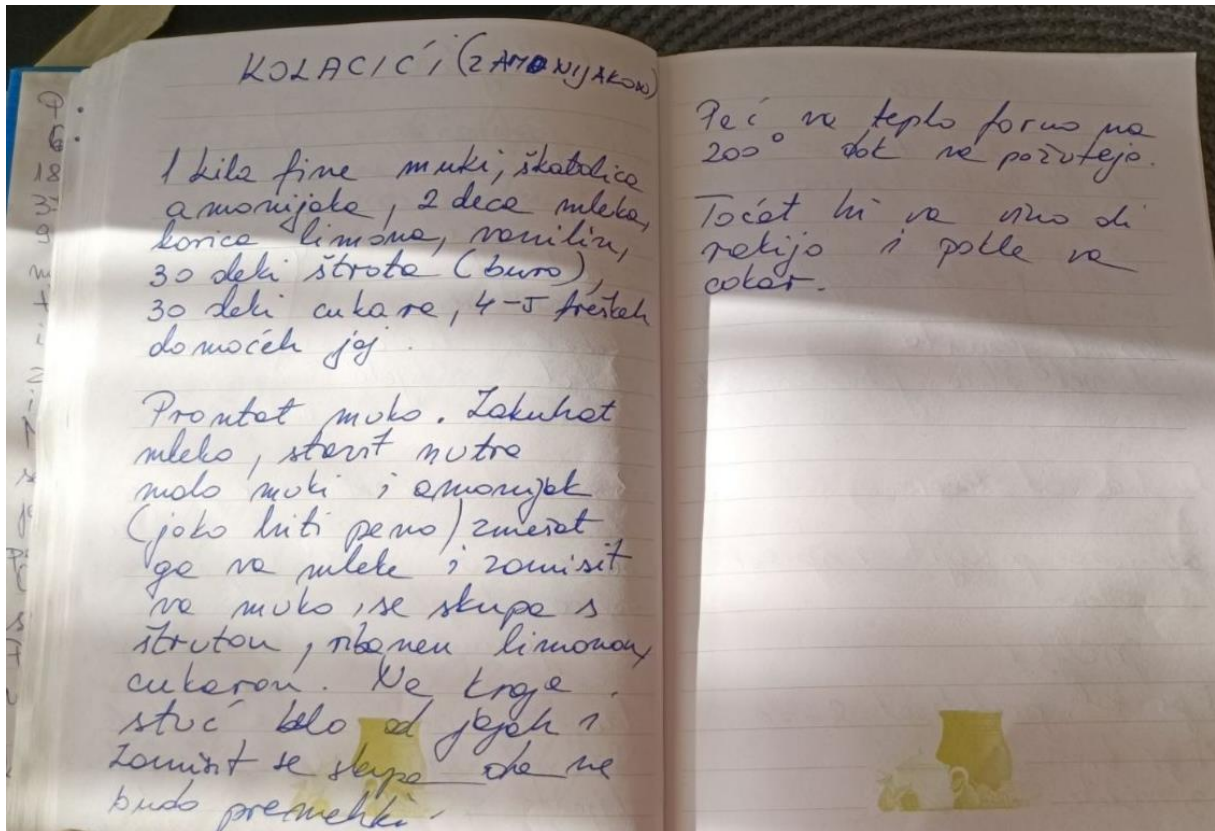 KOLACIĆI (Z AMONIJAKON)
1 kila fine muki, škatolica
amonijaka, 2 deca mleka,
korica limona, vanilin,
30 deki štruta (buro),
30 deki cukara, 4-5 freškeh
domoćeh jaj.
Prontat muko. Zakuhat
mleko, stavit nutra
malo muki i amonijak
(jako hiti peno) zmešat
ga va mleke i zamisit
va muko, se skupa s
štruton, ribanen limonon,
cukaron. Na kraje
stuć belo od jajah i
zamisit se skupa da ne
budo premehki.
Peć va teplo forno na
200° dok ne požutejo.
Toćat hi va vino di
rakijo i potle va
cokar.